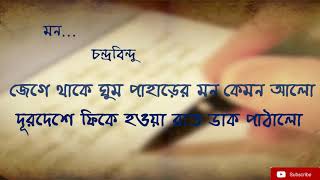 মন...
চন্দ্রবিন্দু
জেগে থাকে ঘুম পাহাড়ের মন কেমন আলো
দূরদেশে ফিকে হওয়া রাত ডাক পাঠালো
Subscribe